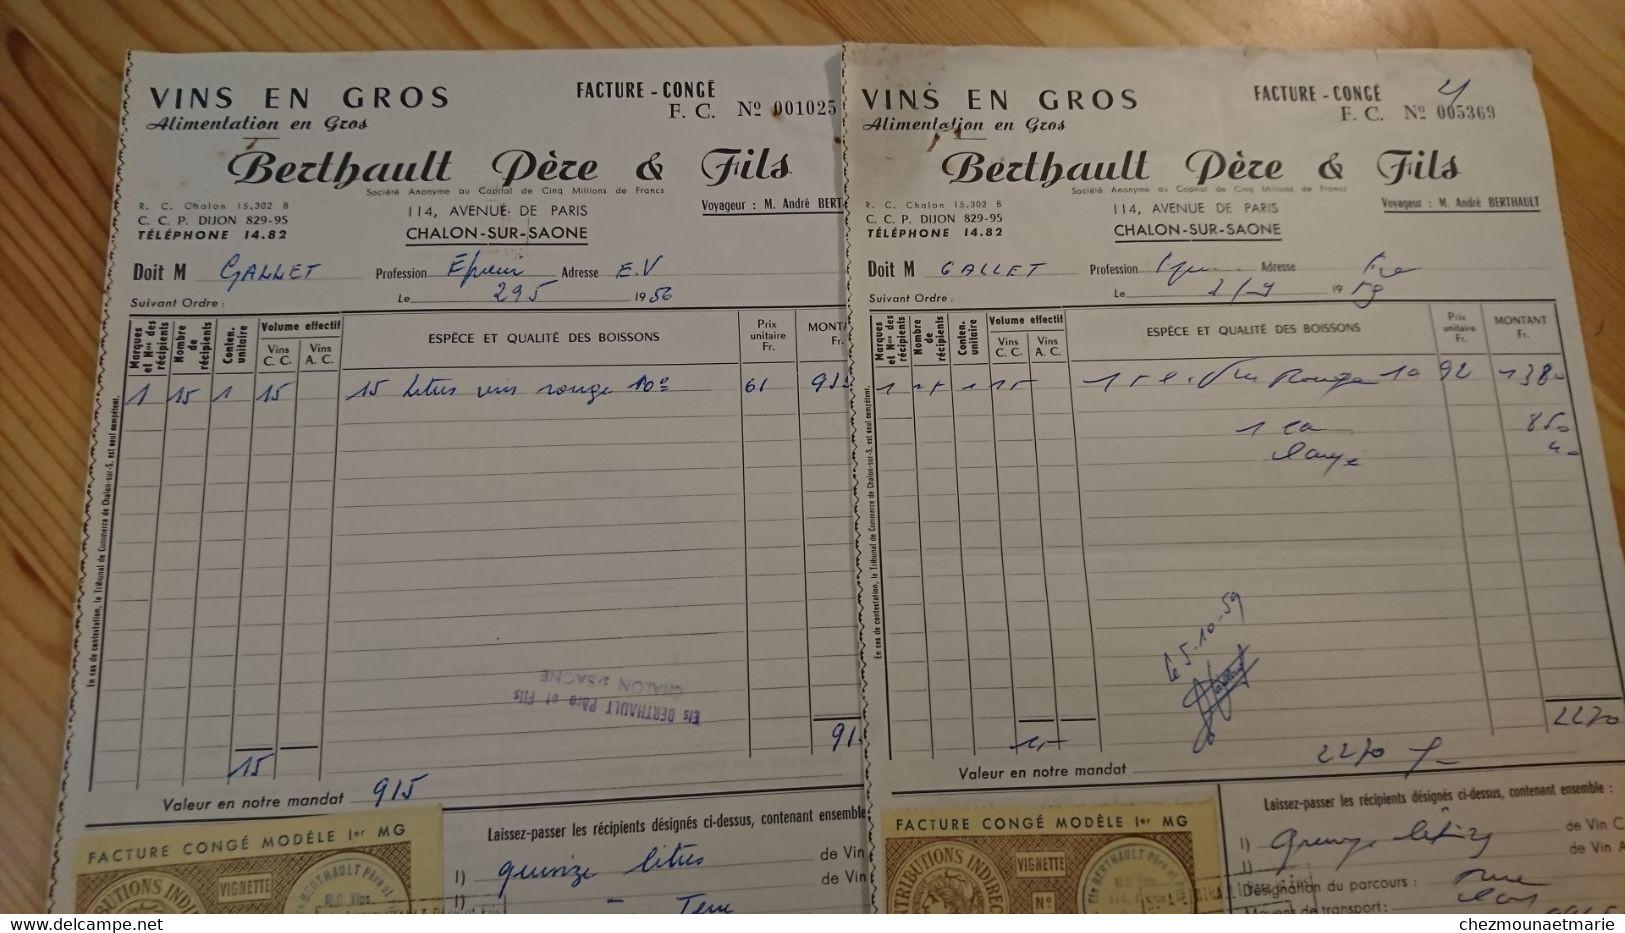 VINS EN GROS
Alimentation en Gros
FACTURE - CONGÉ
F. C. Nº 001025
Berthault Père & Fils
Société Anonyme au Capital de Cinq Millions de Francs
R. C. Chalon 15.302 B
C. C. P. DIJON 829-95
TÉLÉPHONE 14.82
114, AVENUE DE PARIS
CHALON-SUR-SAONE
Voyageur : M. André BERT
Doit M GALLET Profession Épicier Adresse E.V
Suivant Ordre : Le 295 1956
Marques et Nos des récipients
Nombre de récipients
Conten. unitaire
Volume effectif
Vins C. C.
Vins A. C.
ESPÈCE ET QUALITÉ DES BOISSONS
Prix unitaire Fr.
MONTA
Fr.
1 15 1 15 15 Litres vin rouge 10° 61 915
En cas de contestation, le Tribunal de Commerce de Chalon-sur-S. est seul compétent.
Ets BERTHAULT Père et Fils
CHALON s/SAONE
15
91
Valeur en notre mandat 915
FACTURE CONGÉ MODÈLE 1er MG
VIGNETTE
Laissez-passer les récipients désignés ci-dessus, contenant ensemble
1) quinze litres de Vin
1) de Vin
VINS EN GROS
Alimentation en Gros
FACTURE - CONGÉ
F. C. Nº 005369
Berthault Père & Fils
Société Anonyme au Capital de Cinq Millions de Francs
R. C. Chalon 15.302 B
C. C. P. DIJON 829-95
TÉLÉPHONE 14.82
114, AVENUE DE PARIS
CHALON-SUR-SAONE
Voyageur : M. André BERTHAULT
Doit M GALLET Profession Adresse
Suivant Ordre : Le 19 59
Marques et Nos des récipients
Nombre de récipients
Conten. unitaire
Volume effectif
Vins C. C.
Vins A. C.
ESPÈCE ET QUALITÉ DES BOISSONS
Prix unitaire Fr.
MONTANT
Fr.
1 15 1 15 15 l. Vin Rouge 10 92 1380
1 850
40
En cas de contestation, le Tribunal de Commerce de Chalon-sur-S. est seul compétent.
le 5.10-59
15
2270
Valeur en notre mandat 2270 F
FACTURE CONGÉ MODÈLE 1er MG
VIGNETTE
Nº
Laissez-passer les récipients désignés ci-dessus, contenant ensemble :
1) de Vin C
1) de Vin A
Désignation du parcours :
Moyens de transport :
chezmounaetmarie